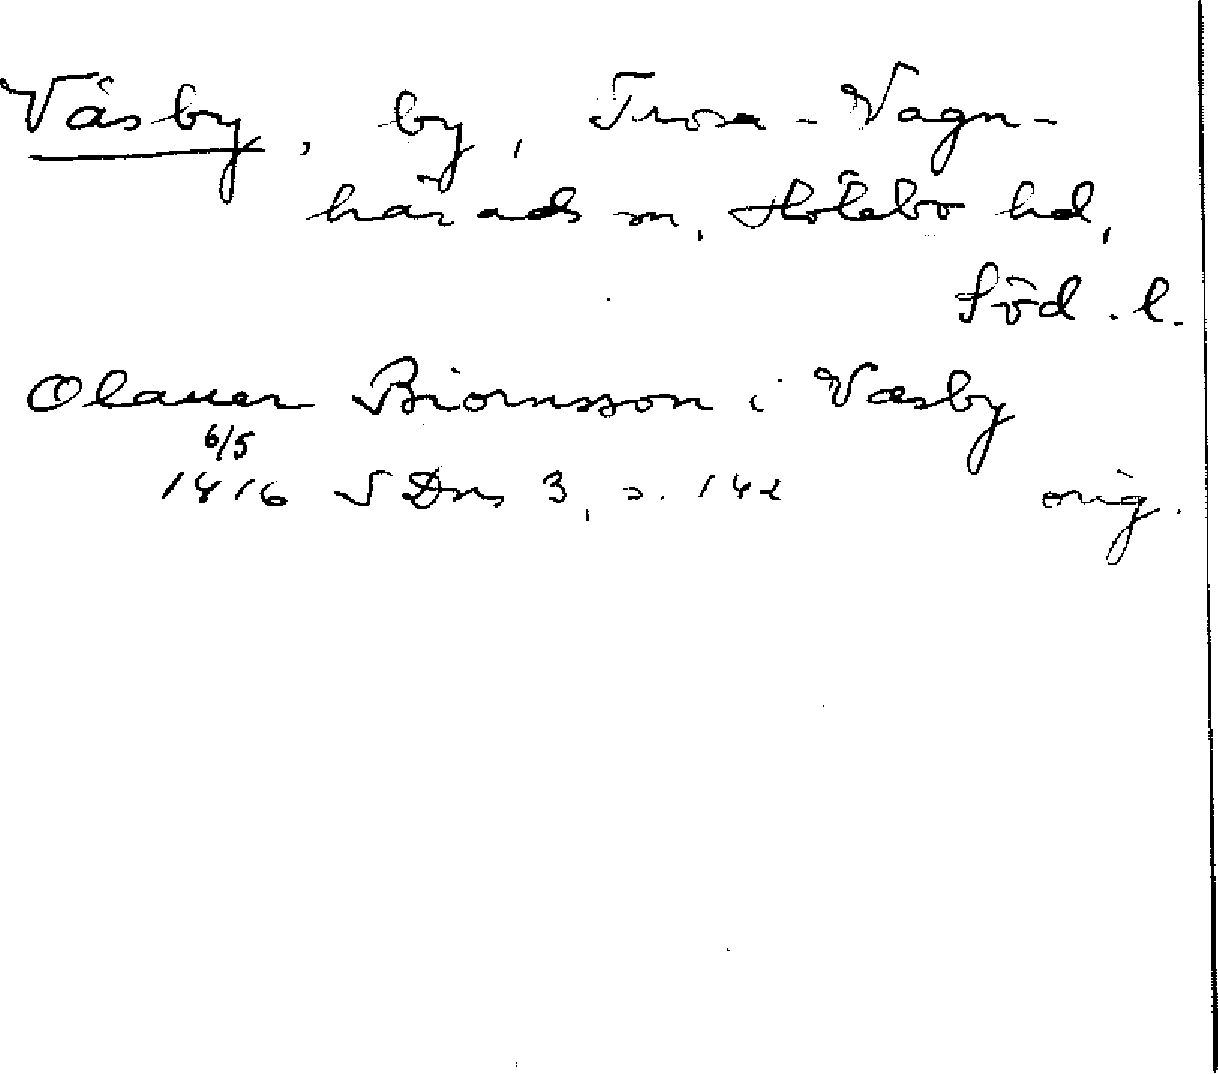 Väsby, by, Trosa-Vagn-
härads sn, Hölebo hd,
Söd. l.
Olauer Biornsson i Væsby
6/5
1416 SDns 3, s. 142 orig.